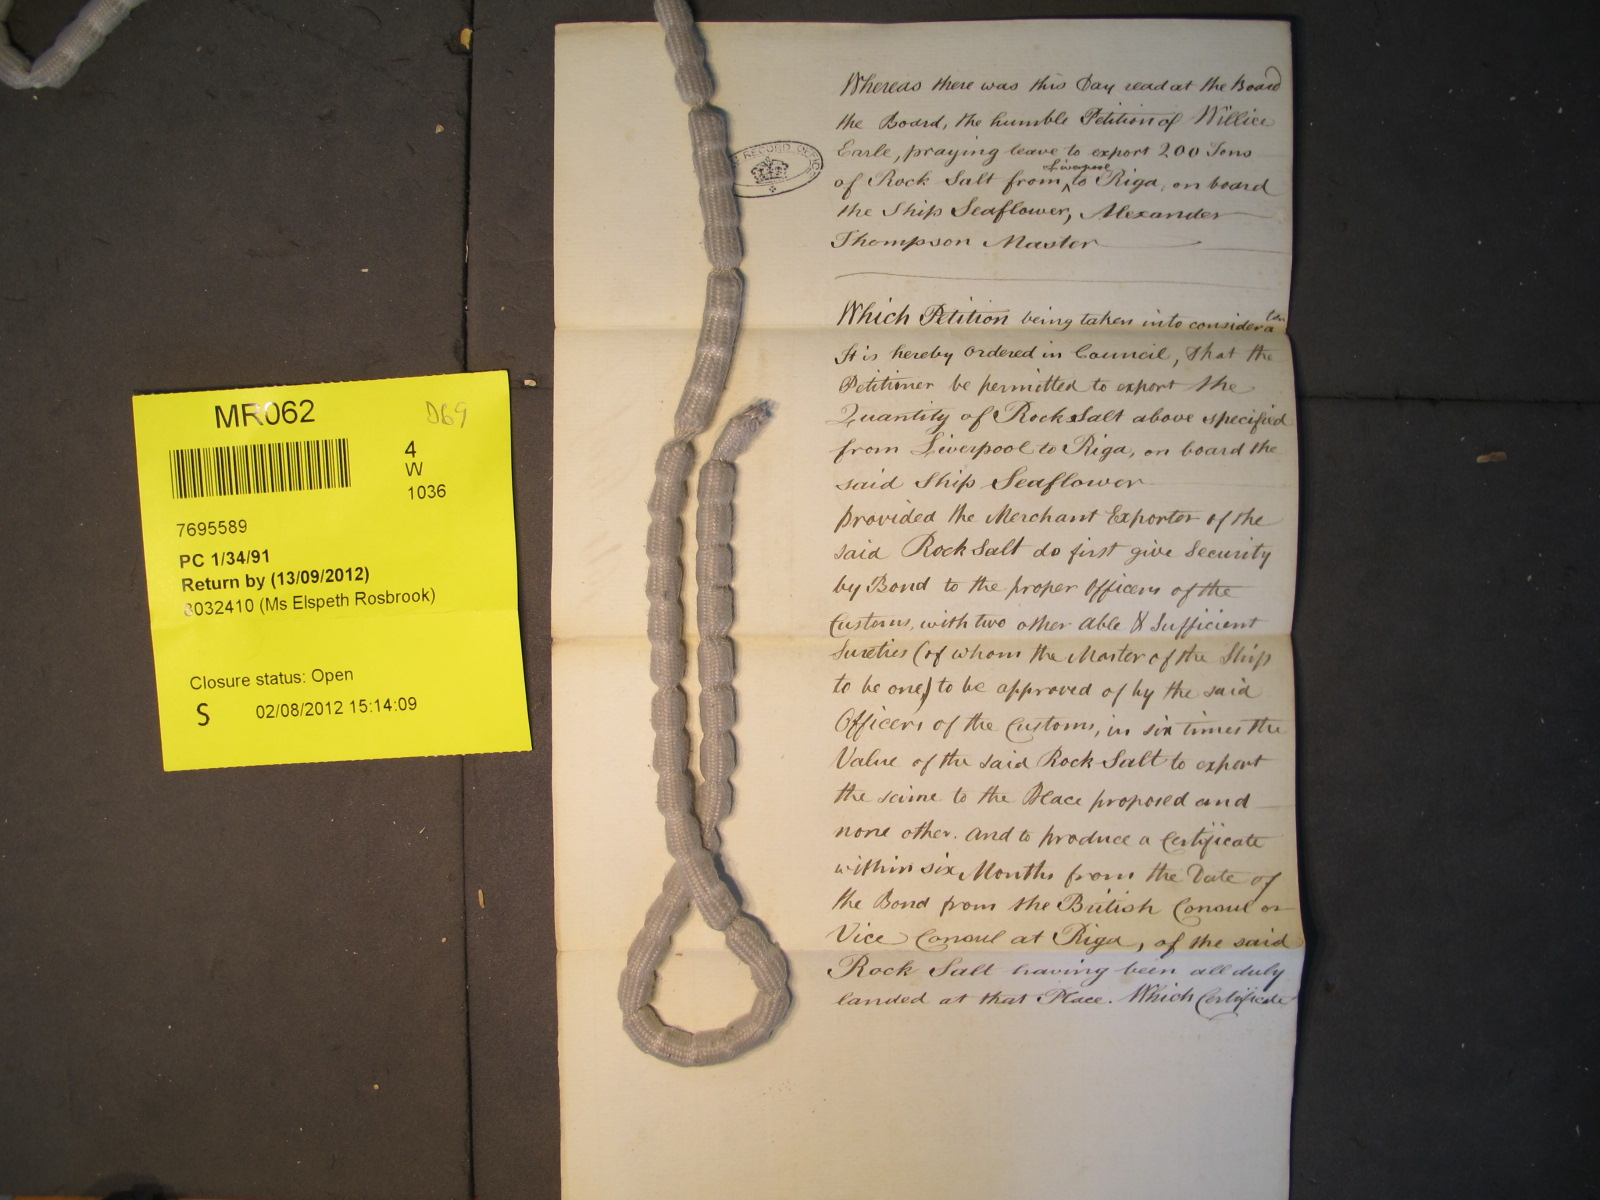 MR062
D69
4
W
1036
7695589
PC 1/34/91
Return by (13/09/2012)
8032410 (Ms Elspeth Rosbrook)
Closure status: Open
S 02/08/2012 15:14:09
RECORD OFFICE
Whereas there was this Day read at the Board
the Board, the humble Petition of Willice
Earle, praying leave to export 200 Tons
of Rock Salt from ^Liverpool to Riga, on board
the Ship Seaflower, Alexander
Thompson Master
Which Petition being taken into consideraton
It is hereby Ordered in Council, that the
Petitioner be permitted to export the
Quantity of Rock Salt above specified
from Liverpool to Riga, on board the
said Ship Seaflower
provided the Merchant Exporter of the
said Rock Salt do first give Security
by Bond to the proper Officers of the
Customs, with two other able & Sufficient
Sureties (of whom the Master of the Ship
to be one) to be approved of by the said
Officers of the Customs, in six times the
Value of the said Rock Salt to export
the same to the Place proposed and
none other. And to produce a Certificate
within six Months from the Date of
the Bond from the British Consul or
Vice Consul at Riga, of the said
Rock Salt having been all duly
landed at that Place. Which Certificate